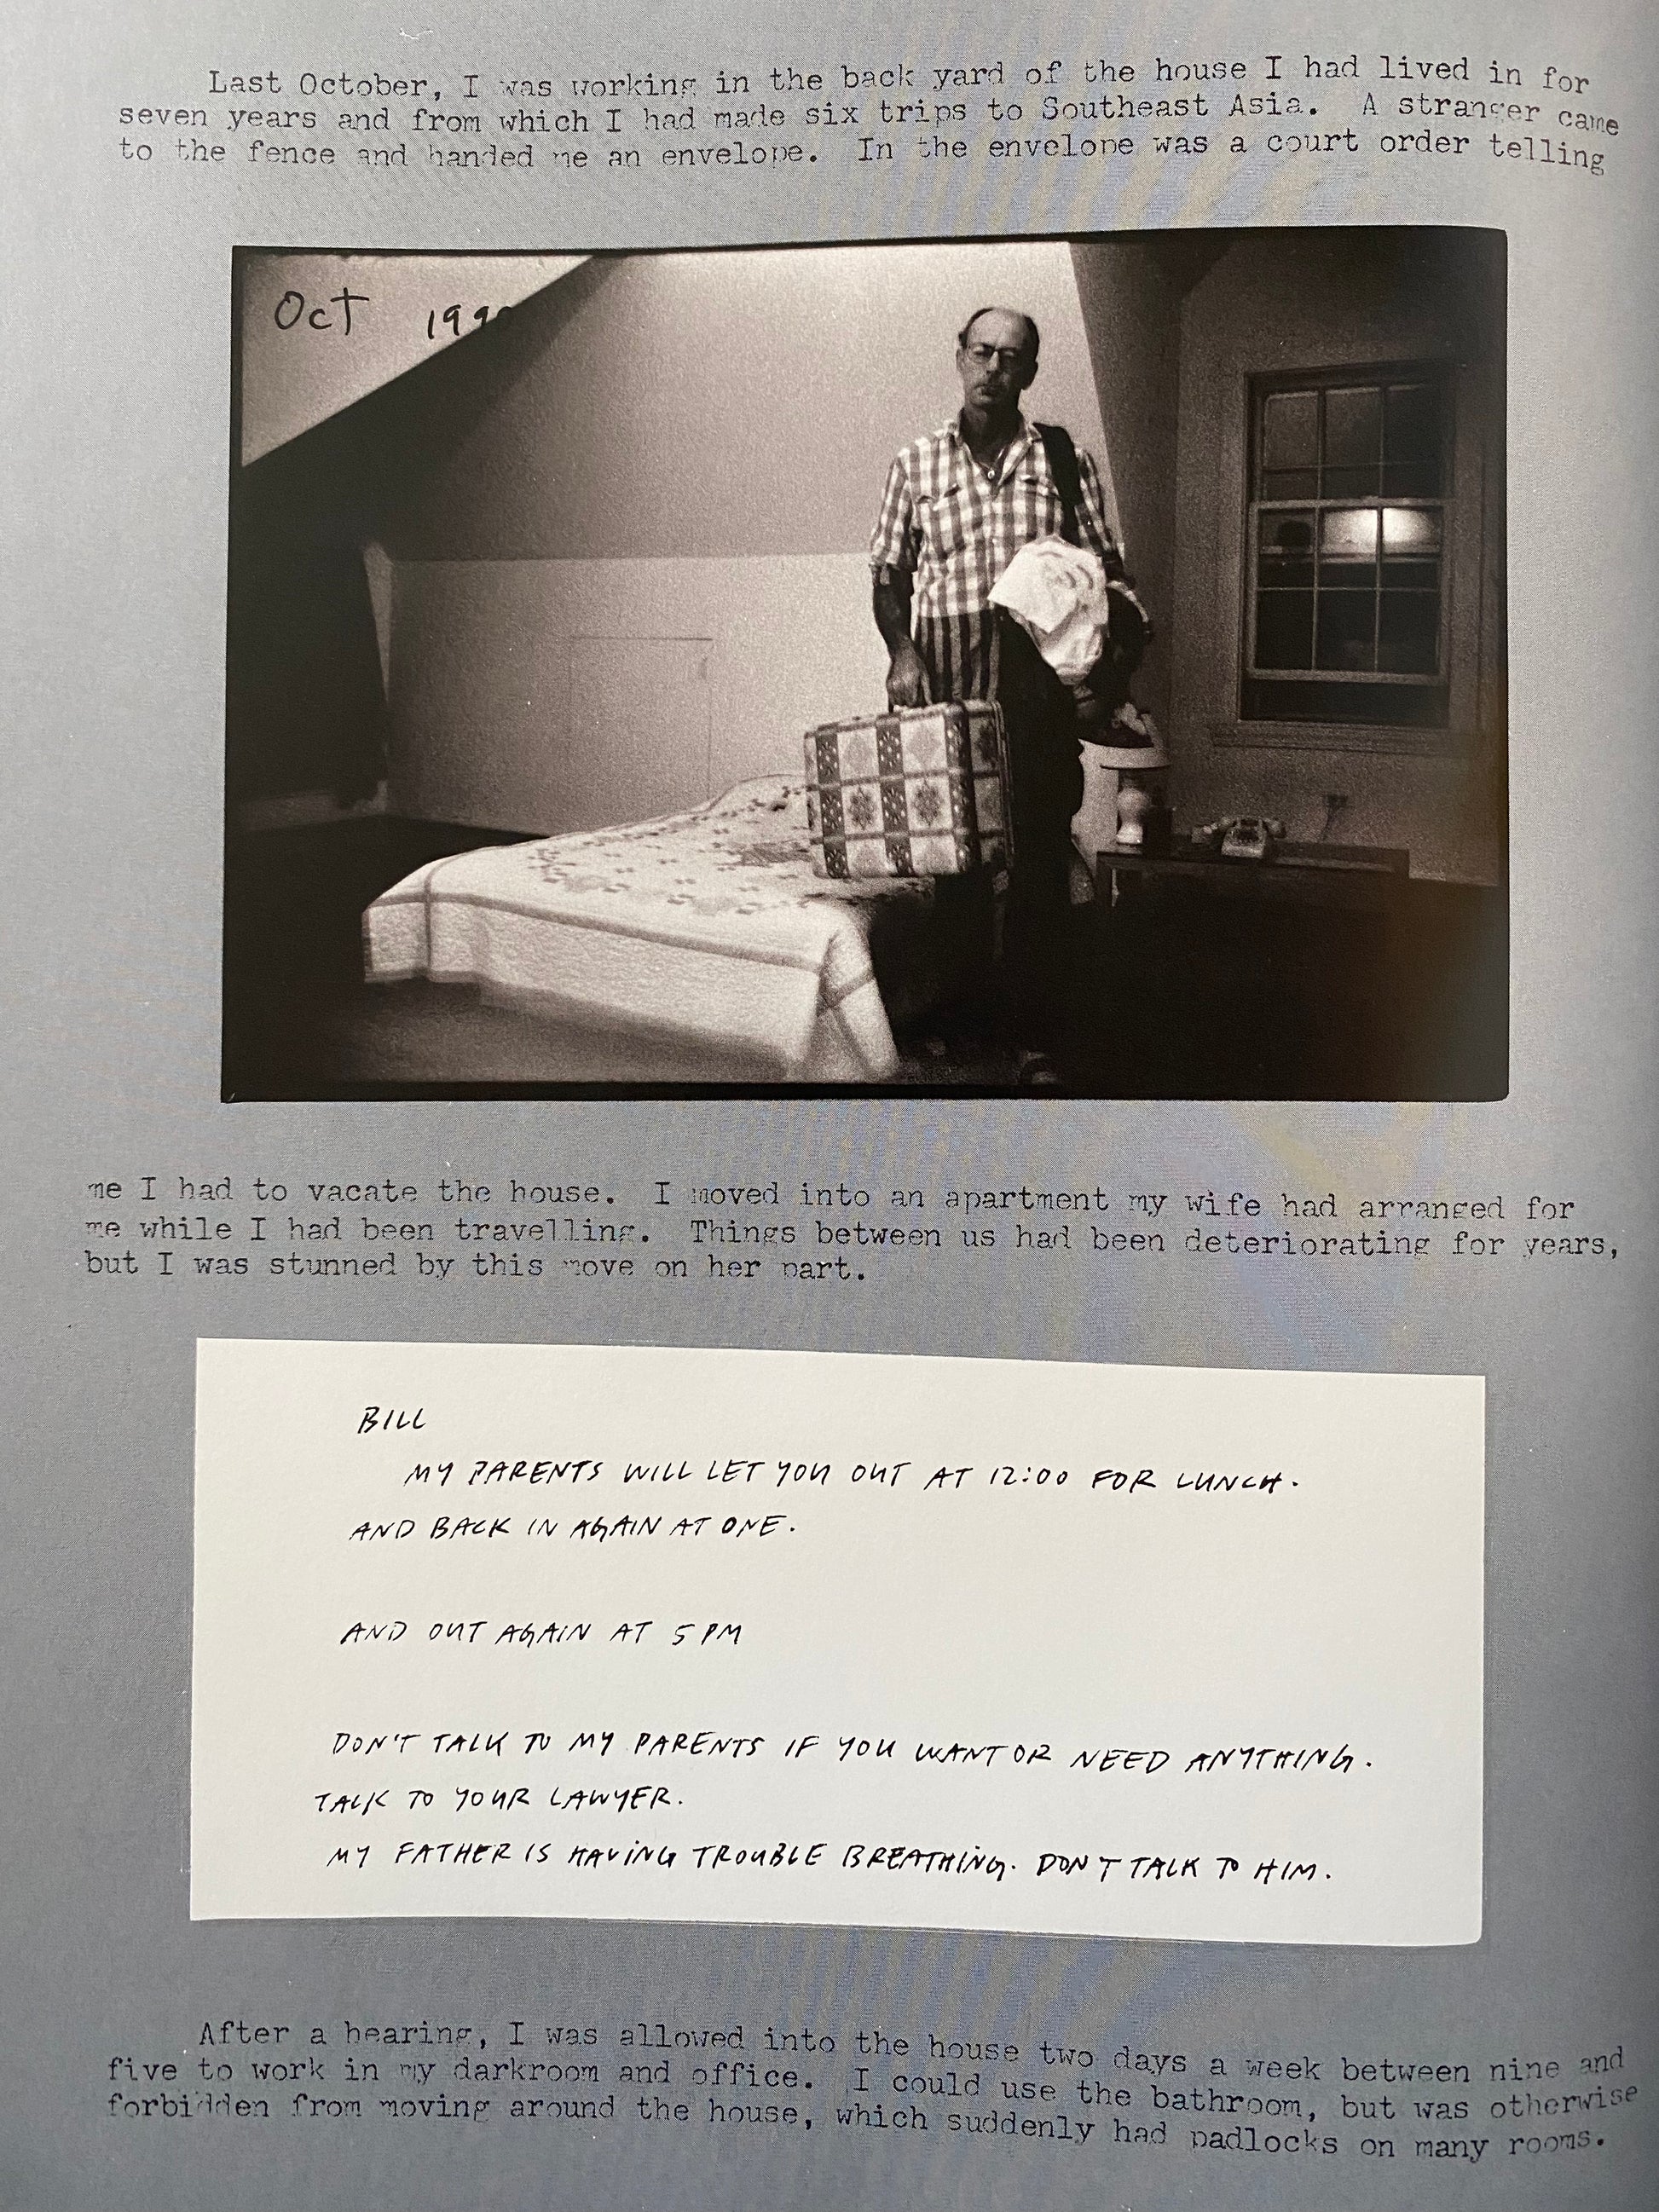 Last October, I was working in the back yard of the house I had lived in for
seven years and from which I had made six trips to Southeast Asia. A stranger came
to the fence and handed me an envelope. In the envelope was a court order telling
Oct 199
me I had to vacate the house. I moved into an apartment my wife had arranged for
me while I had been travelling. Things between us had been deteriorating for years,
but I was stunned by this move on her part.
BILL
MY PARENTS WILL LET YOU OUT AT 12:00 FOR LUNCH.
AND BACK IN AGAIN AT ONE.
AND OUT AGAIN AT 5 PM
DON'T TALK TO MY PARENTS IF YOU WANT OR NEED ANYTHING.
TALK TO YOUR LAWYER.
MY FATHER IS HAVING TROUBLE BREATHING. DON'T TALK TO HIM.
After a hearing, I was allowed into the house two days a week between nine and
five to work in my darkroom and office. I could use the bathroom, but was otherwise
forbidden from moving around the house, which suddenly had padlocks on many rooms.